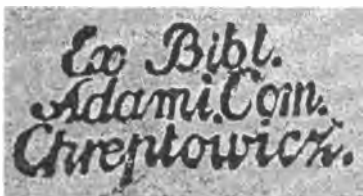 Ex Bibl.
Adami.Com.
Chreptowicz.